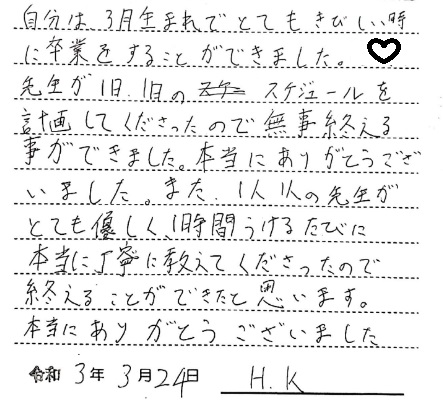 自分は3月生まれでとてもきびしい時
に卒業をすることができました。
先生が1日、1日の スケジュールを
計画してくださったので無事終える
事ができました。本当にありがとうござ
いました。また、1人1人の先生が
とても優しく、1時間うけるたびに
本当に丁寧に教えてくださったので
終えることができたと思います。
本当にありがとうございました
令和 3年 3月24日 H.K